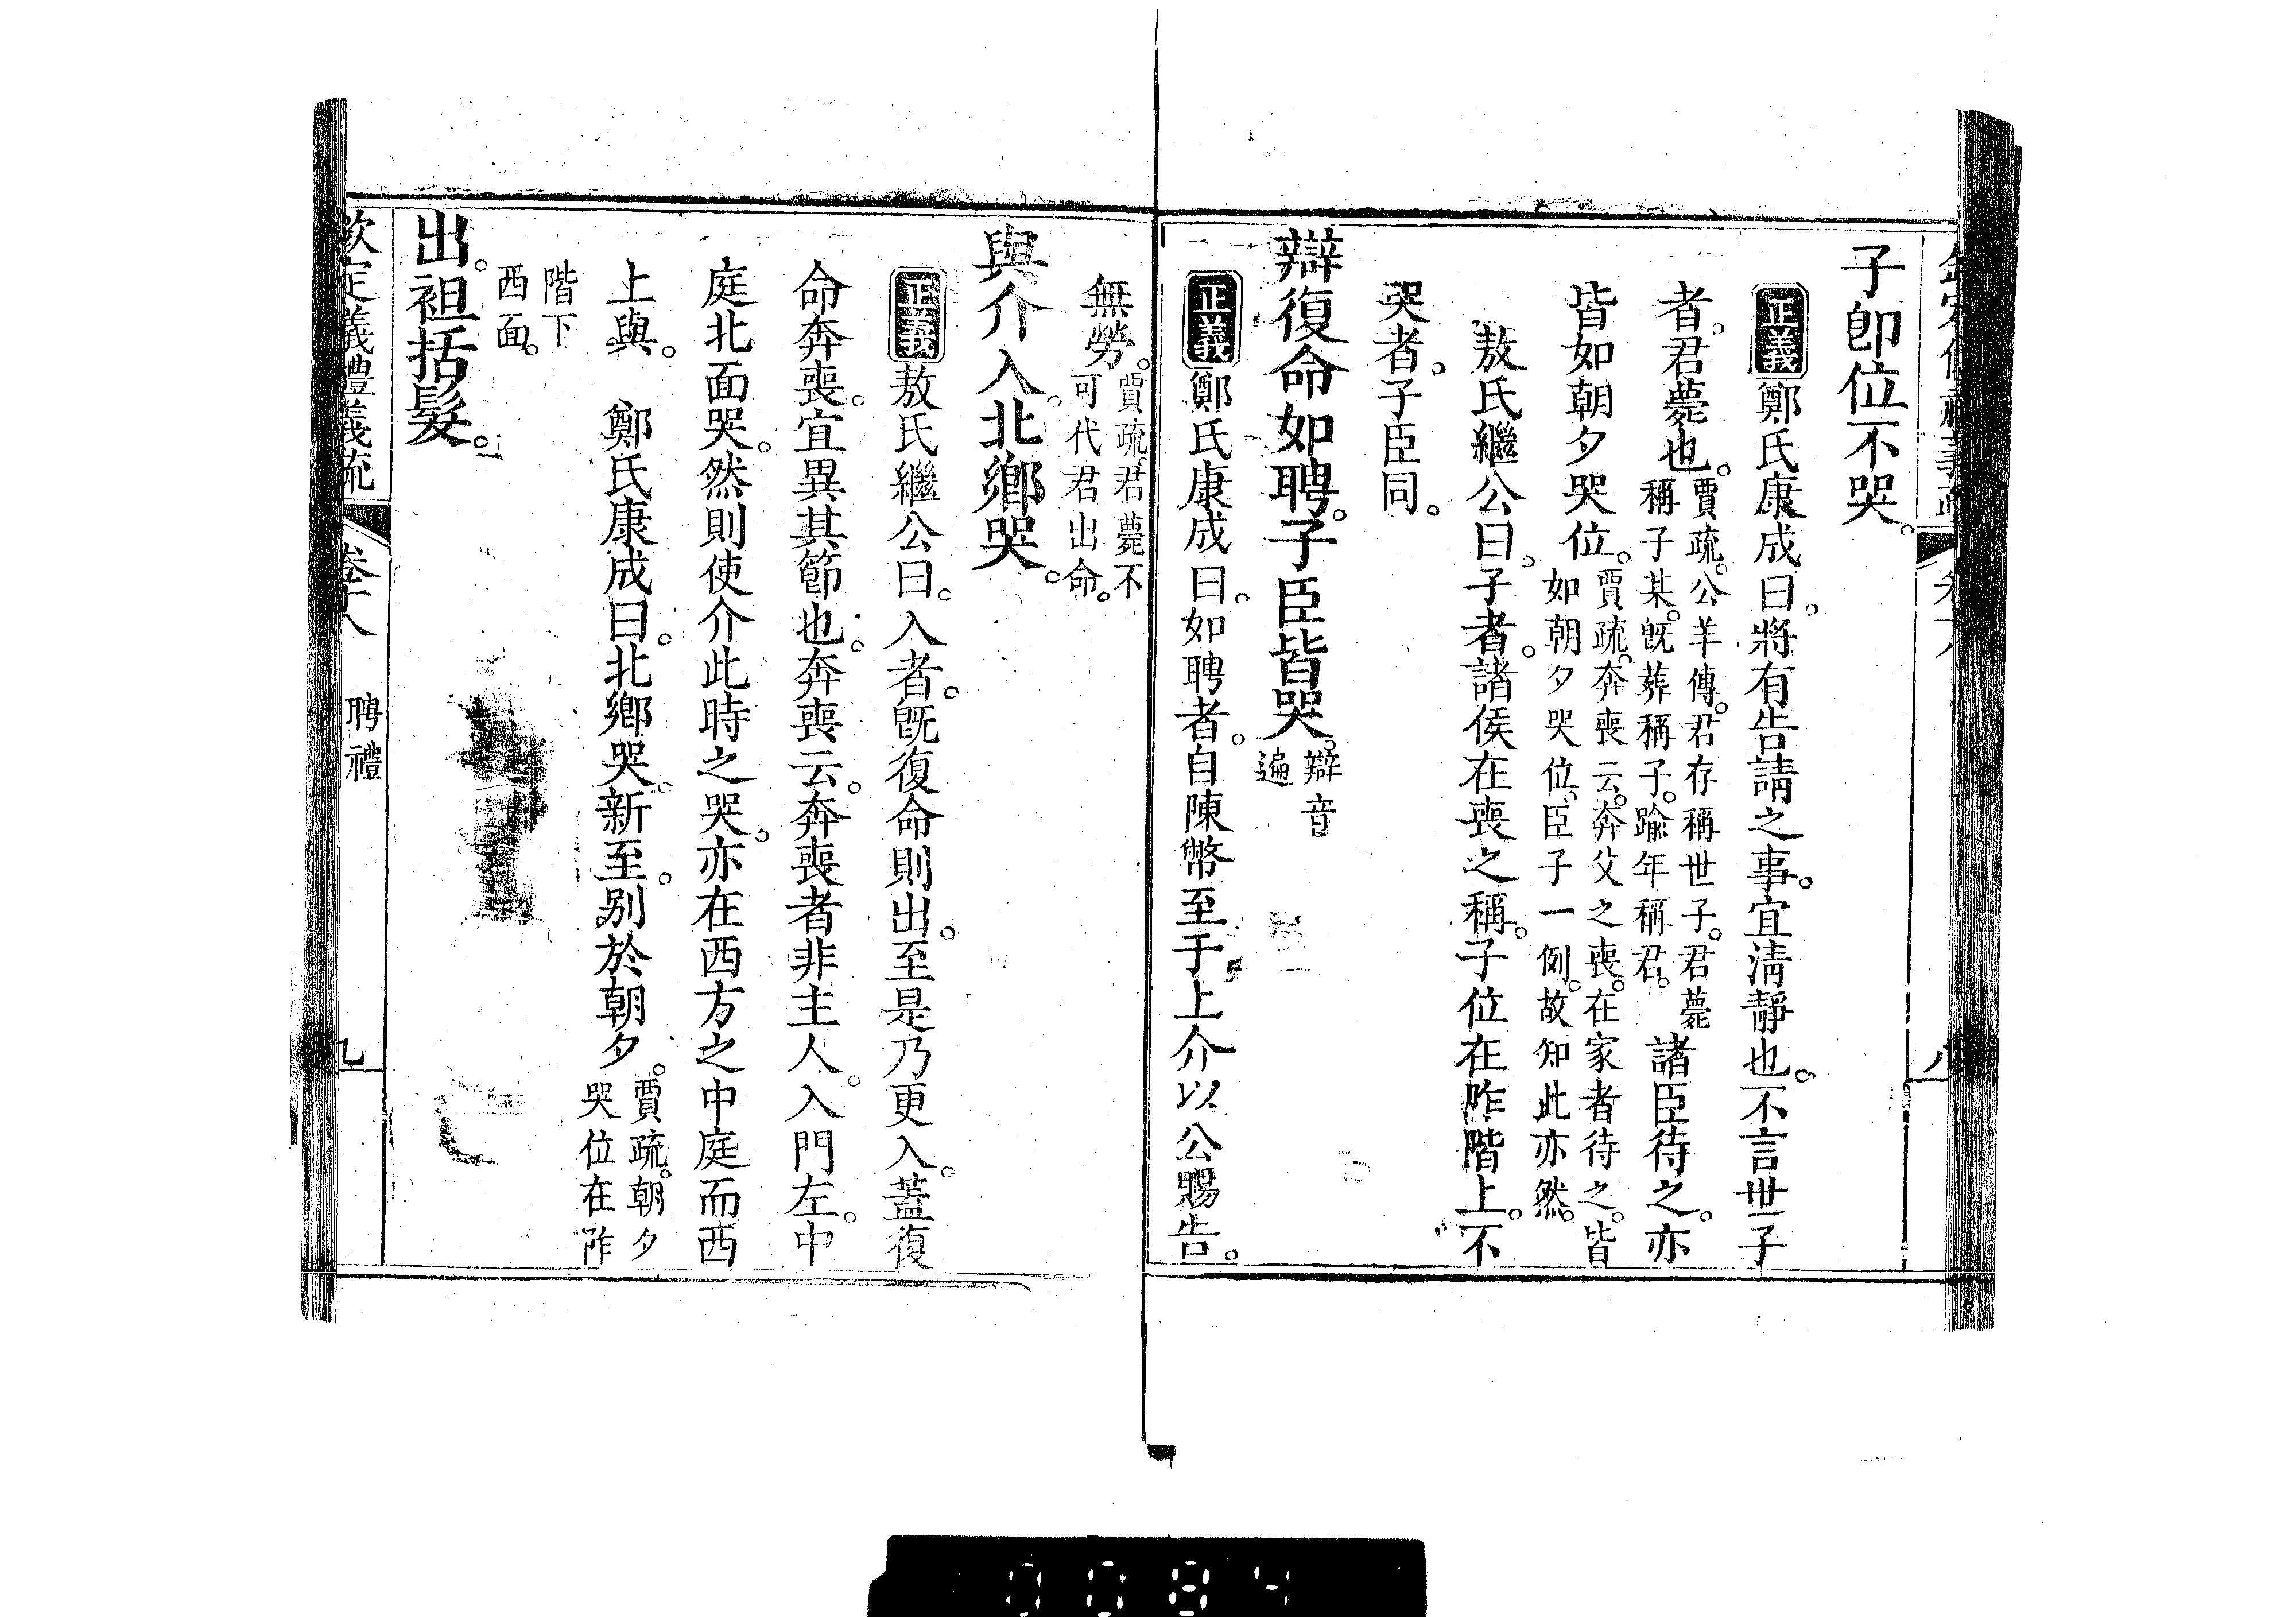 子卽位不哭。
正義鄭氏康成曰。將有告請之事。宜淸靜也。不言世子
者。君薨也。賈疏。公羊傳。君存稱世子。君薨稱子某。旣葬稱子。踰年稱君。諸臣待之。亦
皆如朝夕哭位。賈疏。奔喪云。奔父之喪。在家者待之。皆如朝夕哭位。臣子一例。故知此亦然。
敖氏繼公曰。子者。諸侯在喪之稱。子位在阼階上。不
哭者。子臣同。
辯復命如聘。子臣皆哭。辯音遍
正義鄭氏康成曰。如聘者。自陳幣至于上介以公賜告。
無勞。賈疏。君薨不可代君出命。
與介入。北鄕哭。
正義敖氏繼公曰。入者。旣復命則出。至是乃更入。蓋復
命奔喪。宜異其節也。奔喪云。奔喪者非主人。入門左。中
庭北面哭。然則使介此時之哭。亦在西方之中庭而西
上與。　鄭氏康成曰。北鄕哭。新至。别於朝夕。賈疏。朝夕哭位在阼
階下西面。
出。袒括髮。
欽定義禮義疏　卷十八　聘禮　九